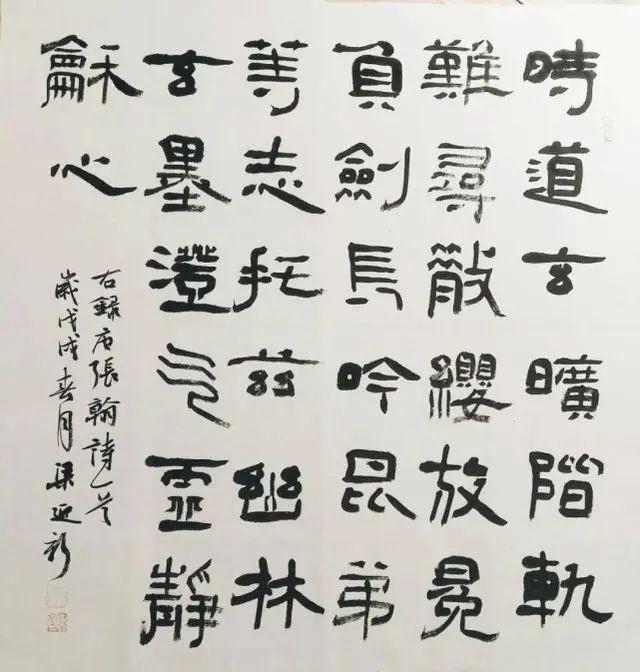 時道玄曠階軌
難尋散纓放冕
負劍長吟昆弟
等志托茲幽林
玄墨澄气虛靜
龢心
右錄唐張翰詩一首
歲戊戌春月梁延新